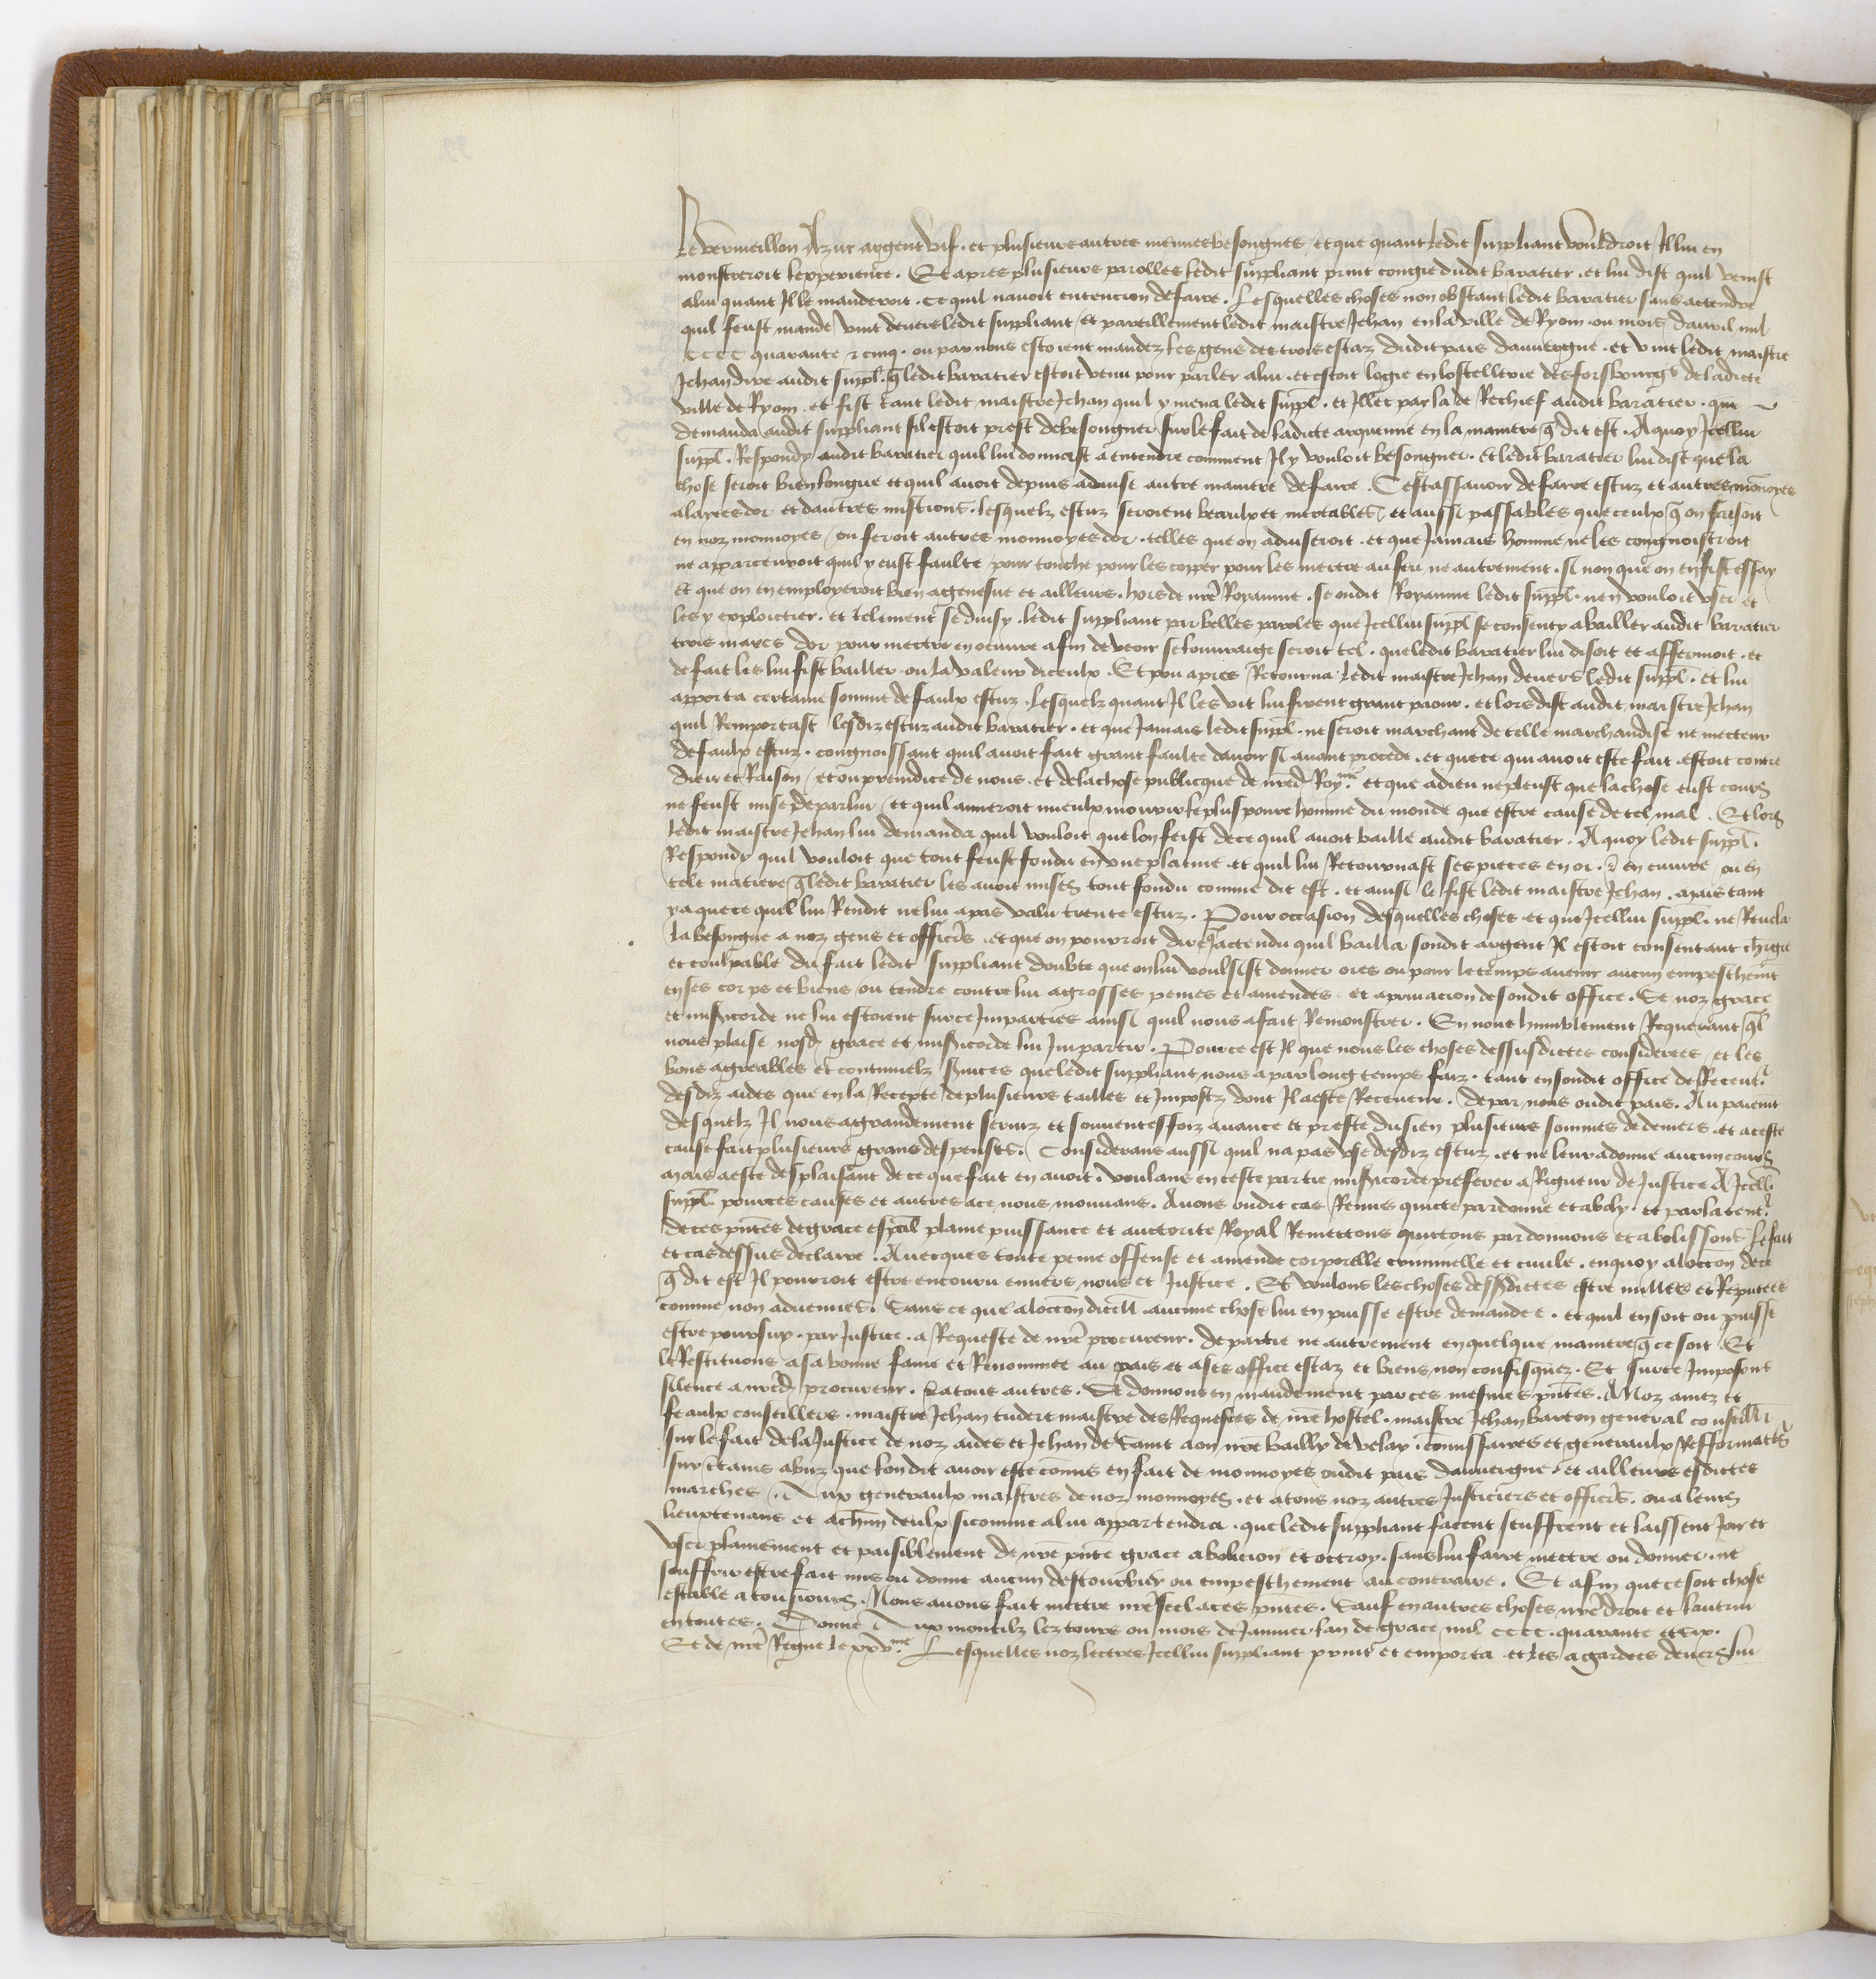 Le vermeillon Azur argent vif. et plusieurs autres menues besongnes, et que quant ledit suppliant vouldroit Il lui en
monstreroit lexperience. Et apres plusieurs parolles ledit suppliant print congie dudit baratier. et lui dist quil venist
a lui quant Il le manderoit. ce quil navoit entencion de faire. Lesquelles choses non obstant ledit baratier sans actendre
quil feust mande vint devers ledit suppliant, et pareillement ledit maistre Jehan en la ville de Ryom. ou mois davril mil
CCCC quarante & cinq. ou par nous estoient mandez les gens des trois estaz dudit pais dauvergne. et vint ledit maistre
Jehan dire audit suppl. q̄ ledit baratier estoit venu pour parler a lui. et estoit logie en lostellerie des forsbourgs de ladicte
ville de Ryom. et fist tant ledit maistre Jehan quil y mena ledit suppl. et Illec parla de Rechief audit baratier. qui
demanda audit suppliant sil estoit prest de besongner sur le fait de ladicte arquemie en la maniere q̄ dit est. A quoy Icellui
suppl. Respondy audit baratier quil lui donnast a entendre comment Il y vouloit besongner. Et ledit baratier lui dist que la
chose seroit bien longue et quil avoit depuis advise autre maniere de faire. Cest assavoir de faire escuz et autres monnoyes
a layes dor et dautres mistions. lesquelz escuz seroient beaulx et mectables, et aussi passables que ceulx q̄ on faisoit
en noz monnoyes, ou feroit autres monnoyes dor. telles que on adviseroit. et que Jamais homme ne les congnoistroit
ne apparcevroit quil y eust faulte, pour touche pour les copper pour les mectre au feu ne autrement. si non que on en fist essay
Et que on en employeroit bien a genesve et ailleurs. hors de nrē Royaume. se oudit Royaume ledit suppl. nen vouloit user et
les y exploictier. et telement seduisy. ledit suppliant par belles paroles que Icellui suppl. se consenty a bailler audit baratier
trois marcs dor pour mectre en oeuvre afin de veoir se louvraige seroit tel. que ledit baratier lui disoit et affermoit. et
de fait les lui fist bailler. ou la valeur diceulx. Et peu apres Retourna ledit maistre Jehan devers ledit suppl. et lui
apporta certaine somme de faulx escuz. Lesquelz quant Il les vit lui firent grant paour. et lors dist audit maistre Jehan
quil Remportast lesdiz escuz audit baratier. et que Jamais ledit suppl. ne seroit marchant de telle marchandise ne metteur
de faulx escuz. congnoissant quil avoit fait grant faulte davoir si avant procede. et que ce qui avoit este fait. estoit contre
dieu et Raison, et ou preiudice de nous. et de la chose publicque de nrēd. Roy.me et que a dieu ne pleust que la chose eust cours
ne feust mise de par lui, et quil aimeroit mieulx mourir le plus povre homme du monde que estre cause de tel mal. Et lors
ledit maistre Jehan lui demanda quil vouloit que lon feist de ce quil avoit baille audit baratier. A quoy ledit suppl.
Respondy quil vouloit que tout feust fondu en une platine. et quil lui Retournast ses pieces en or. & en cuivre, ou en
tele matiere q̄ ledit baratier les avoit mises tout fondu comme dit est. et ainsi le fist ledit maistre Jehan. mais tant
y a que ce quil lui Rendit ne lui a pas valu trente escuz. Pour occasion desquelles choses. et que Icellui suppl. ne Revela
la besongne a noz gens et officiērs. et que on pourroit dire q̄ actendu quil bailla sondit argent Il estoit consentant chargie
et coulpable du fait ledit suppliant doubte que on lui voulsist donner ores ou pour le temps avenir aucun empeschemt
en ses corps et biens, ou tendre contre lui a grosses peines et amendes. et a privacion de sondit office. Se noz grace
et misericorde ne lui estoient sur ce Imparties ainsi quil nous a fait Remonstrer. En nous humblement Requerant ql
nous plaise nosd. grace et misericorde lui Impartir. Pour ce est Il que nous les choses dessusdictes considerees, et les
bons agreables et continuelz services que ledit suppliant nous a par long temps faiz. tant en sondit office de Recent.
desdiz aides que en la Recepte de plusieurs tailles et Impostz dont Il a este Receveur. de par nous oudit pais. Au paiemt
desquelz Il nous a grandement serviz et souventesfoiz avance et preste du sien plusieurs sommes de deniers. et a ceste
cause fait plusieurs grans despenses. Considerans aussi quil na pas use desdiz escuz. et ne leur a donne aucun cours
mais a este desplaisant de ce que fait en avoit. voulans en ceste partie misericorde preferer a Rigueur de Justice A Icell.
suppl. pour ces causes et autres a ce nous mouvans. Avons oudit cas Remis quicte pardonne et aboly. et par la teneur
de ces pñtes de grace esp̄al plaine puissance et auctorite Royal Remectons quictons pardonnons et abolissons le fait
et cas dessus declaire. Avecques toute peine offense et amende corporelle criminelle et civile. en quoy a loccōn de ce
q̄ dit est Il pourroit estre encouru envers nous et Justice. Et voulons les choses dessusdictes estre nulles et Reputees
comme non advenues. Sans ce que a loccōn dicell. aucune chose lui en puisse estre demandee. et quil en soit ou puisse
estre poursuy. par Justice. a Requeste de nrē procureur. de partie ne autrement en quelque maniere q̄ ce soit. Et
le Restituons a sa bonne fame et Renommee au pais et a ses office estaz et biens non confisquez. Et sur ce Imposons
silence a nrēd. procureur. & a tous autres. Et donnons en mandement par ces mesmes pñtes. A Noz amez et
feaulx conseillers. maistre Jehan tudert maistre des Requestes de nrē hostel. maistre Jehan barton general conseillr
sur le fait de la Justice de noz aides et Jehan de Saint aon nrē bailly de velay. cōmissaires et generaulx Refformatrs
sur ctains abuz que lon dit avoir este cōmis en fait de monnoyes oudit pais dauvergne. et ailleurs esdictes
marches. Aux generaulx maistres de noz monnoyes. et a tous noz autres Justiciers et officiērs. ou a leurs
lieuxtenans et a chun deulx sicomme a lui appartendra. que ledit suppliant facent seuffrent et laissent Joir et
user plainement et paisiblement de nrē pñte grace abolicion et octroy. sans lui faire mectre ou donner. ne
souffrir estre fait mis ou donne aucun destourbier ou empeschement au contraire. Et afin que ce soit chose
estable a tousiours. Nous avons fait mectre nrē seel a ces pñtes. Sauf en autres choses nrē droit et lautrui
en toutes. Donne Aux montilz lez tours ou mois de Janvier lan de grace mil CCCC. quarante et six.
Et de nrē Regne le xxv.me Lesquelles noz lectres Icellui suppliant print et emporta. et les a gardees devers lui